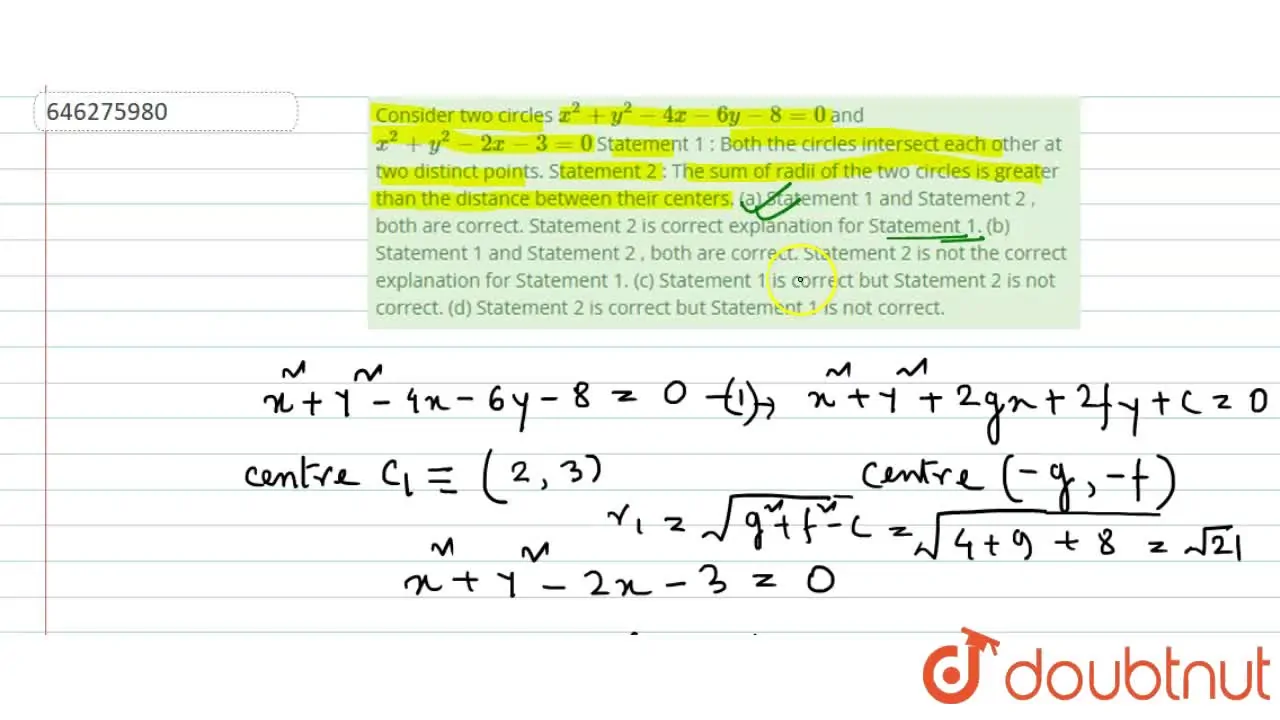 646275980
Consider two circles x² + y² − 4x − 6y − 8 = 0 and
x² + y² − 2x − 3 = 0 Statement 1 : Both the circles intersect each other at
two distinct points. Statement 2 : The sum of radii of the two circles is greater
than the distance between their centers. (a) Statement 1 and Statement 2 ,
both are correct. Statement 2 is correct explanation for Statement 1. (b)
Statement 1 and Statement 2 , both are correct. Statement 2 is not the correct
explanation for Statement 1. (c) Statement 1 is correct but Statement 2 is not
correct. (d) Statement 2 is correct but Statement 1 is not correct.
x² + y² − 4x − 6y − 8 = 0 −(1)→ x² + y² + 2gx + 2fy + c = 0
centre C₁ ≡ (2, 3) centre (−g, −f)
r₁ = √(g² + f² − c) = √(4 + 9 + 8) = √21
x² + y² − 2x − 3 = 0
doubtnut